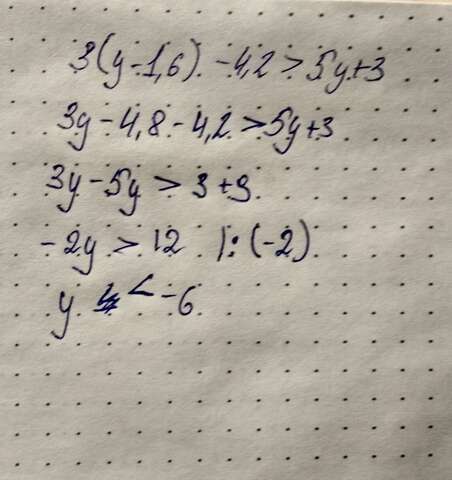 3(y-1,6)-4,2>5y+3
3y-4,8-4,2>5y+3
3y-5y>3+9
-2y>12 |:(-2)
y <-6